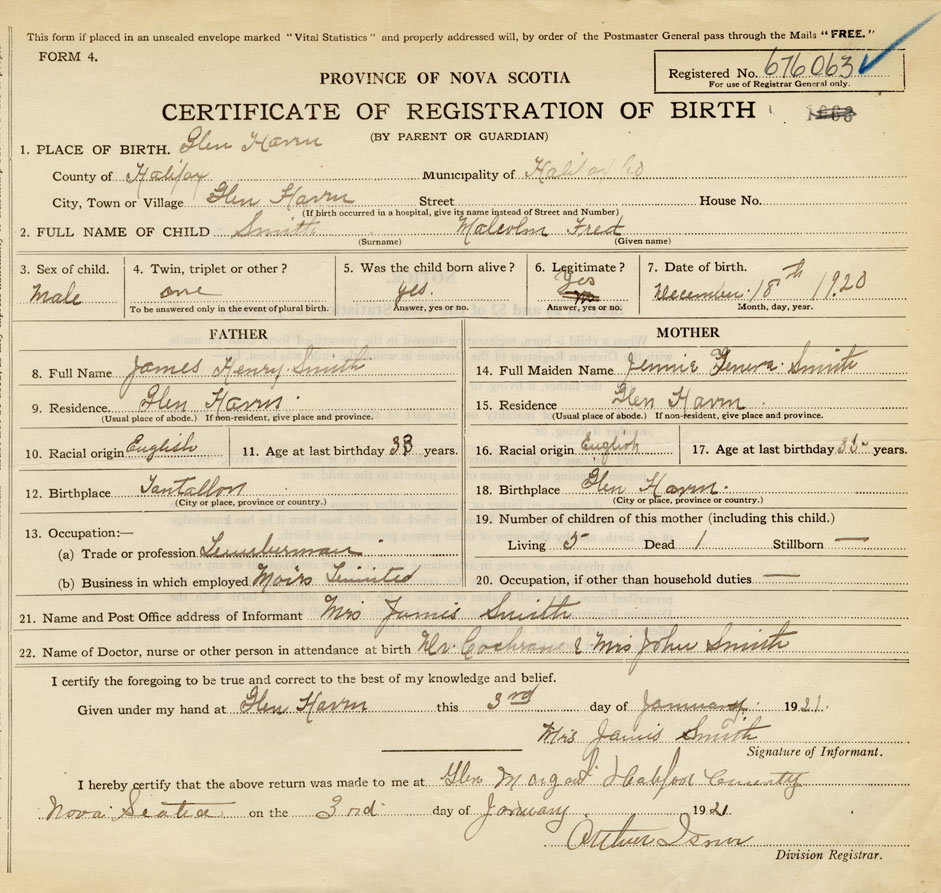 This form if placed in an unsealed envelope marked "Vital Statistics" and properly addressed will, by order of the Postmaster General pass through the Mails "FREE."
FORM 4.
Registered No. 676063
For use of Registrar General only.
PROVINCE OF NOVA SCOTIA
CERTIFICATE OF REGISTRATION OF BIRTH
(BY PARENT OR GUARDIAN)
1. PLACE OF BIRTH. Glen Haven
County of Halifax Municipality of Halifax Co
City, Town or Village Glen Haven Street House No.
(If birth occurred in a hospital, give its name instead of Street and Number)
2. FULL NAME OF CHILD Smith Malcolm Fred
(Surname) (Given name)
3. Sex of child. 4. Twin, triplet or other? 5. Was the child born alive? 6. Legitimate? 7. Date of birth.
Male one yes. Yes December 18th 1920
To be answered only in the event of plural birth. Answer, yes or no. Answer, yes or no. Month, day, year.
FATHER MOTHER
8. Full Name James Henry Smith 14. Full Maiden Name Jennie Smith
9. Residence Glen Haven 15. Residence Glen Haven
(Usual place of abode.) If non-resident, give place and province. (Usual place of abode.) If non-resident, give place and province.
10. Racial origin English 11. Age at last birthday 33 years. 16. Racial origin English 17. Age at last birthday years.
12. Birthplace Tantallon 18. Birthplace Glen Haven
(City or place, province or country.) (City or place, province or country.)
13. Occupation:— 19. Number of children of this mother (including this child.)
(a) Trade or profession Lumberman Living 5 Dead 1 Stillborn —
(b) Business in which employed Moirs Limited 20. Occupation, if other than household duties —
21. Name and Post Office address of Informant Mrs James Smith
22. Name of Doctor, nurse or other person in attendance at birth Dr. Cochrane & Mrs John Smith
I certify the foregoing to be true and correct to the best of my knowledge and belief.
Given under my hand at Glen Haven this 3rd day of January 1921.
Mrs James Smith
Signature of Informant.
I hereby certify that the above return was made to me at Glen County
Nova Scotia on the 3rd day of January 1921
Arthur Isnor
Division Registrar.